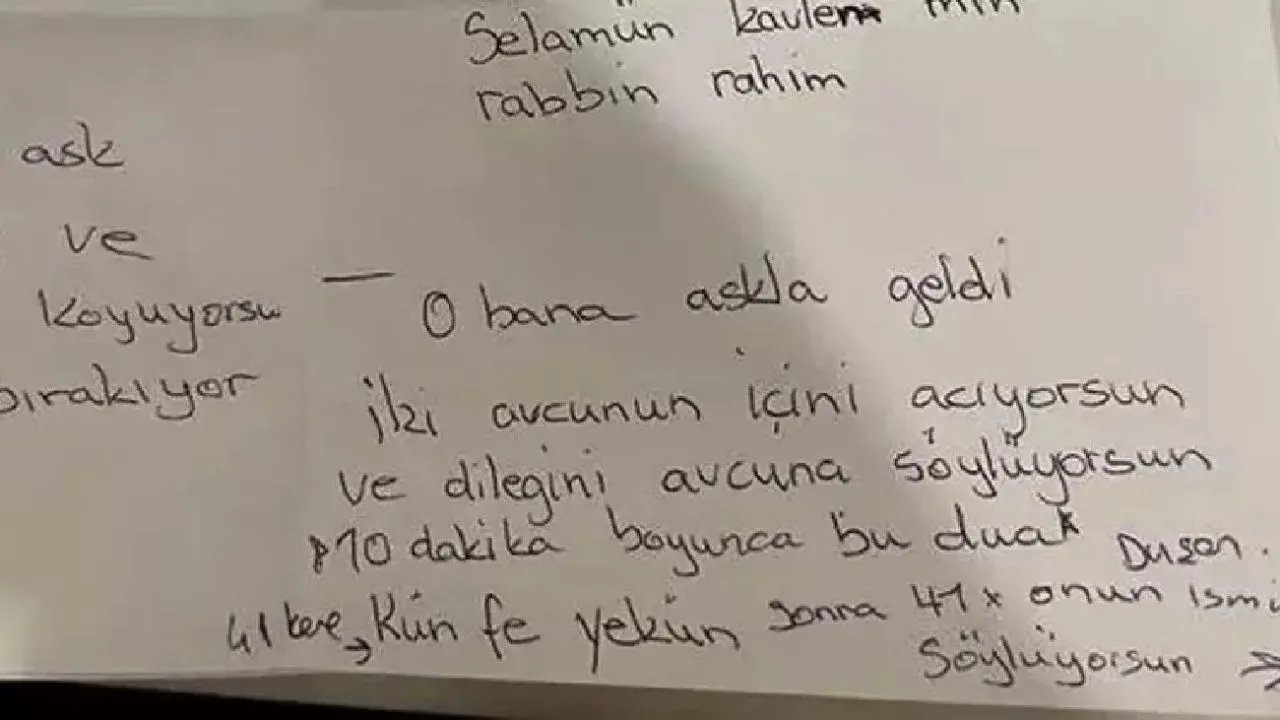 Selamün kavlem min
rabbin rahim
ask
ve
koyuyorsu
bırakıyor
— O bana askla geldi
iki avcunun içini acıyorsun
ve dilegini avcuna söylüyorsun
10 dakika boyunca bu dua
Dusan.
41 kere → Kün fe yekün sonra 41x onun ismi
Söylüyorsun →